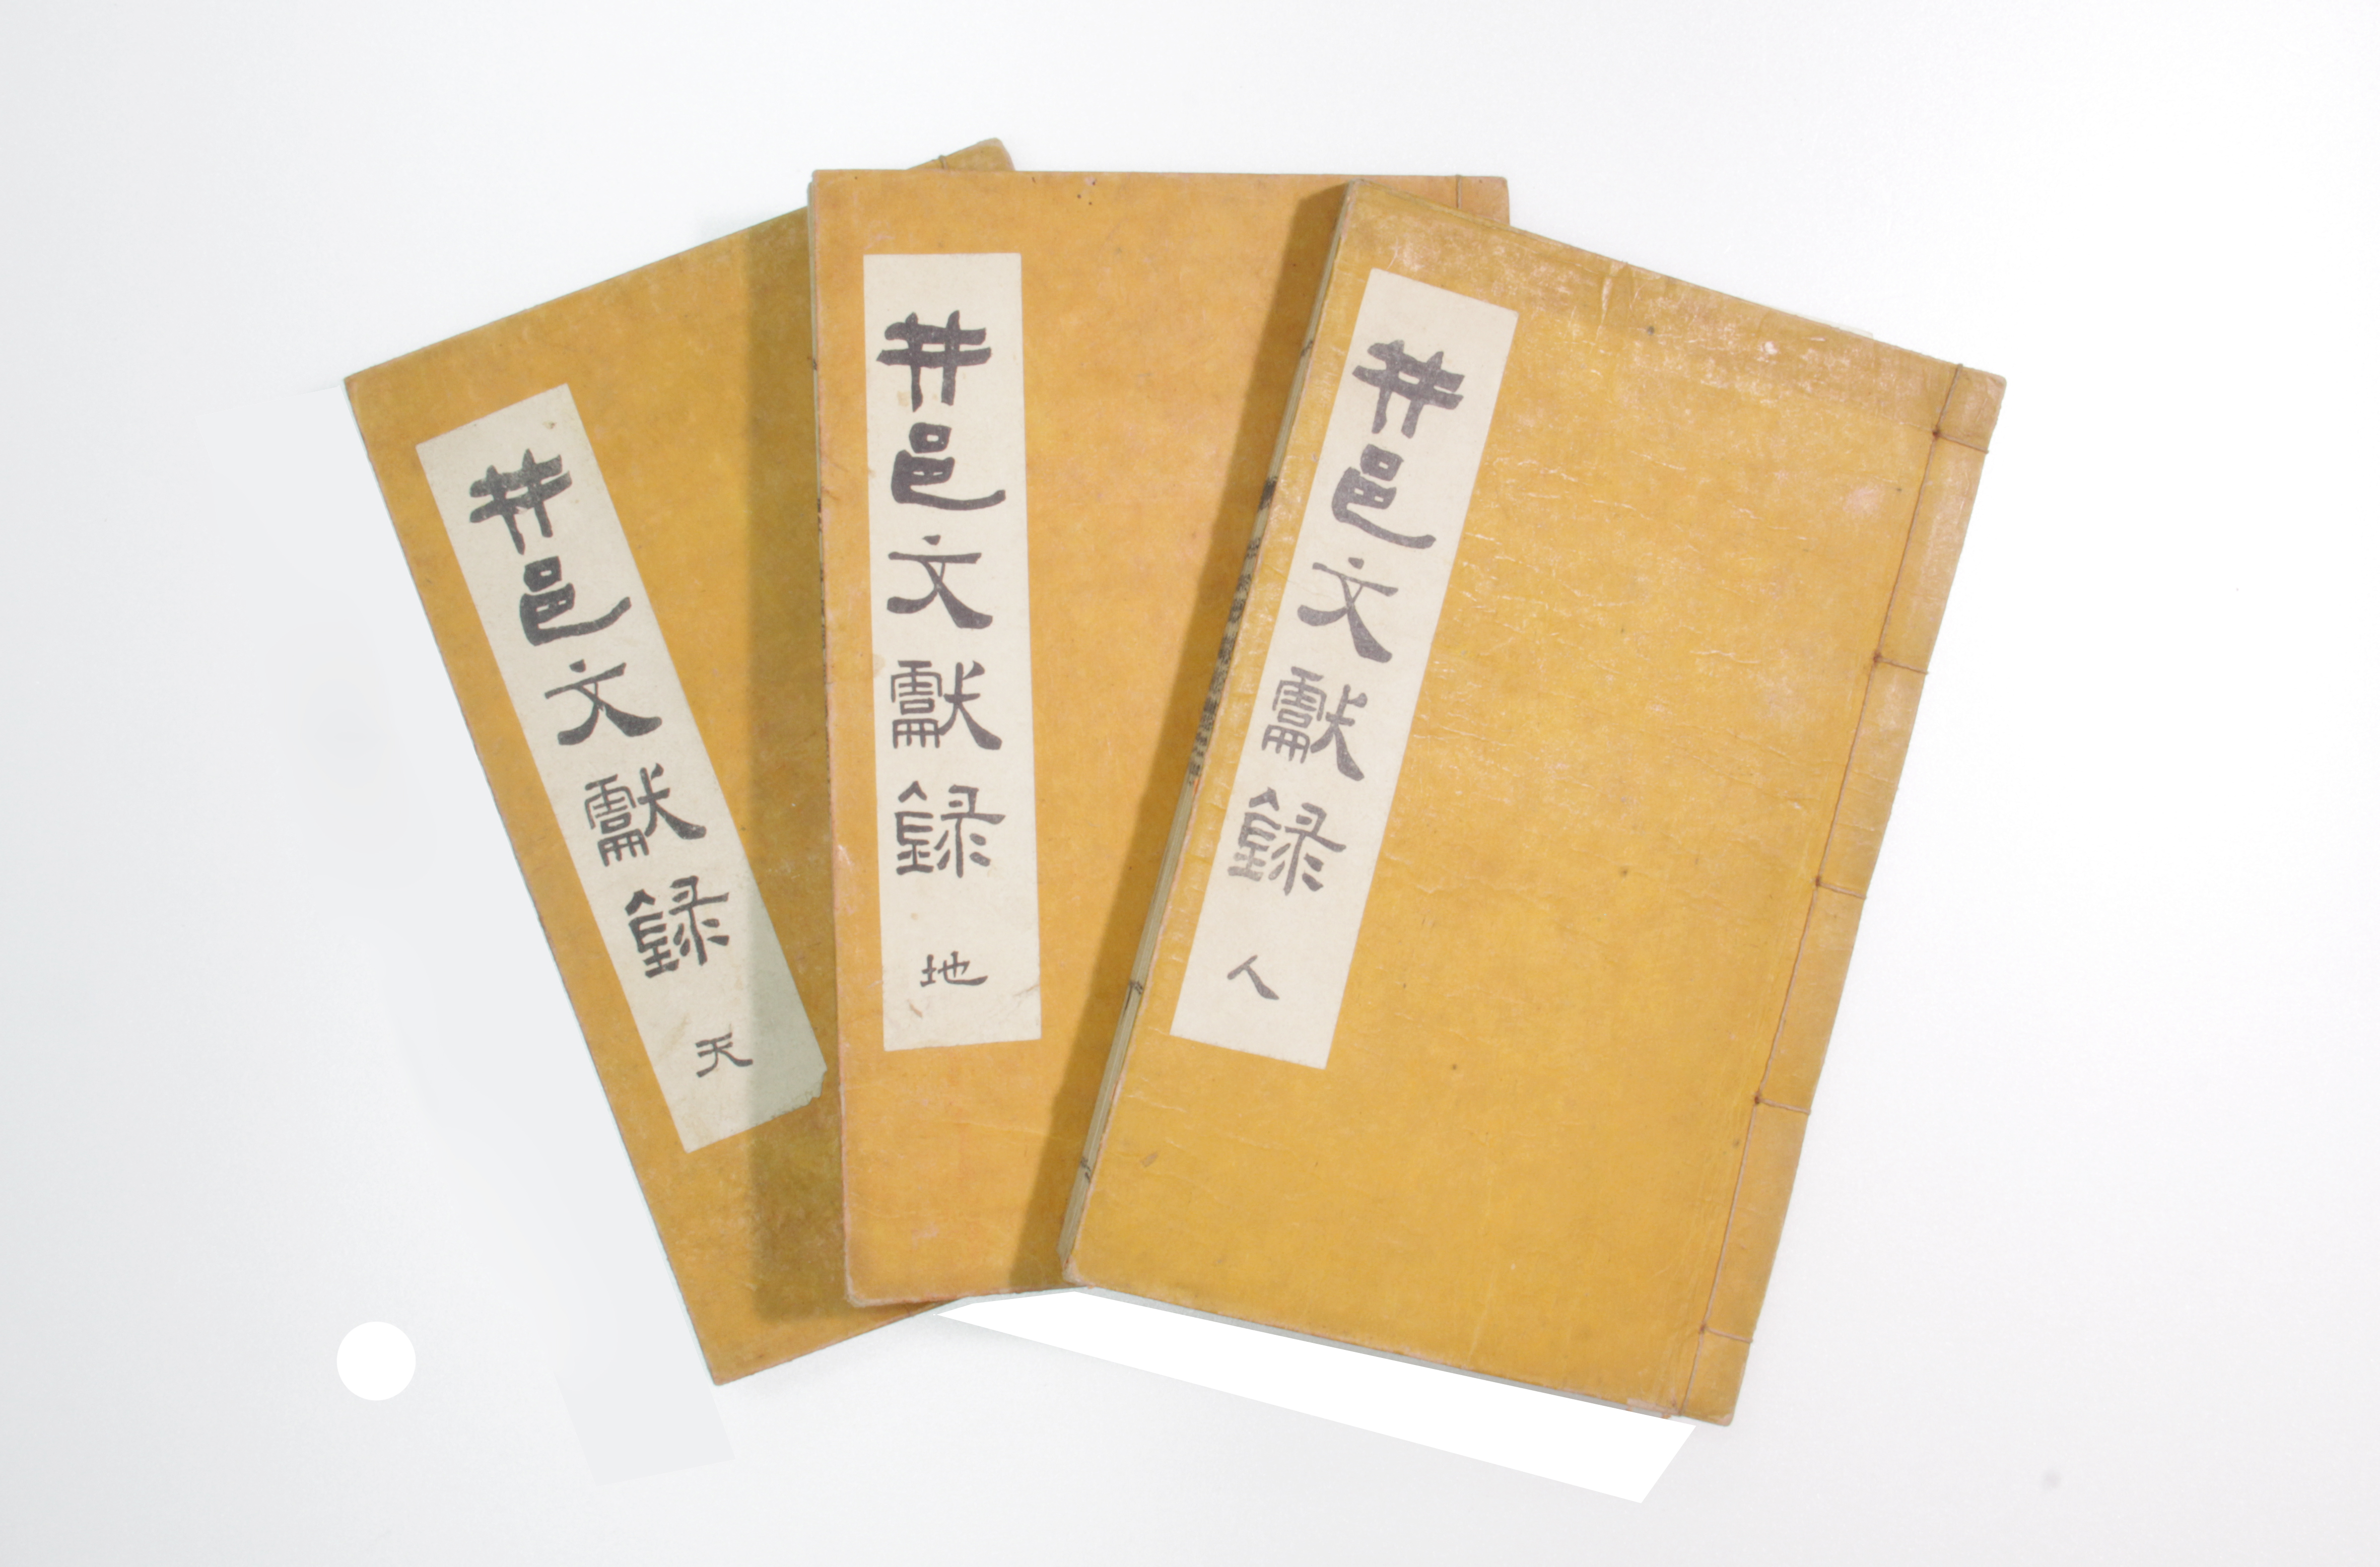 井邑文獻錄 天
井邑文獻錄 地
井邑文獻錄 人